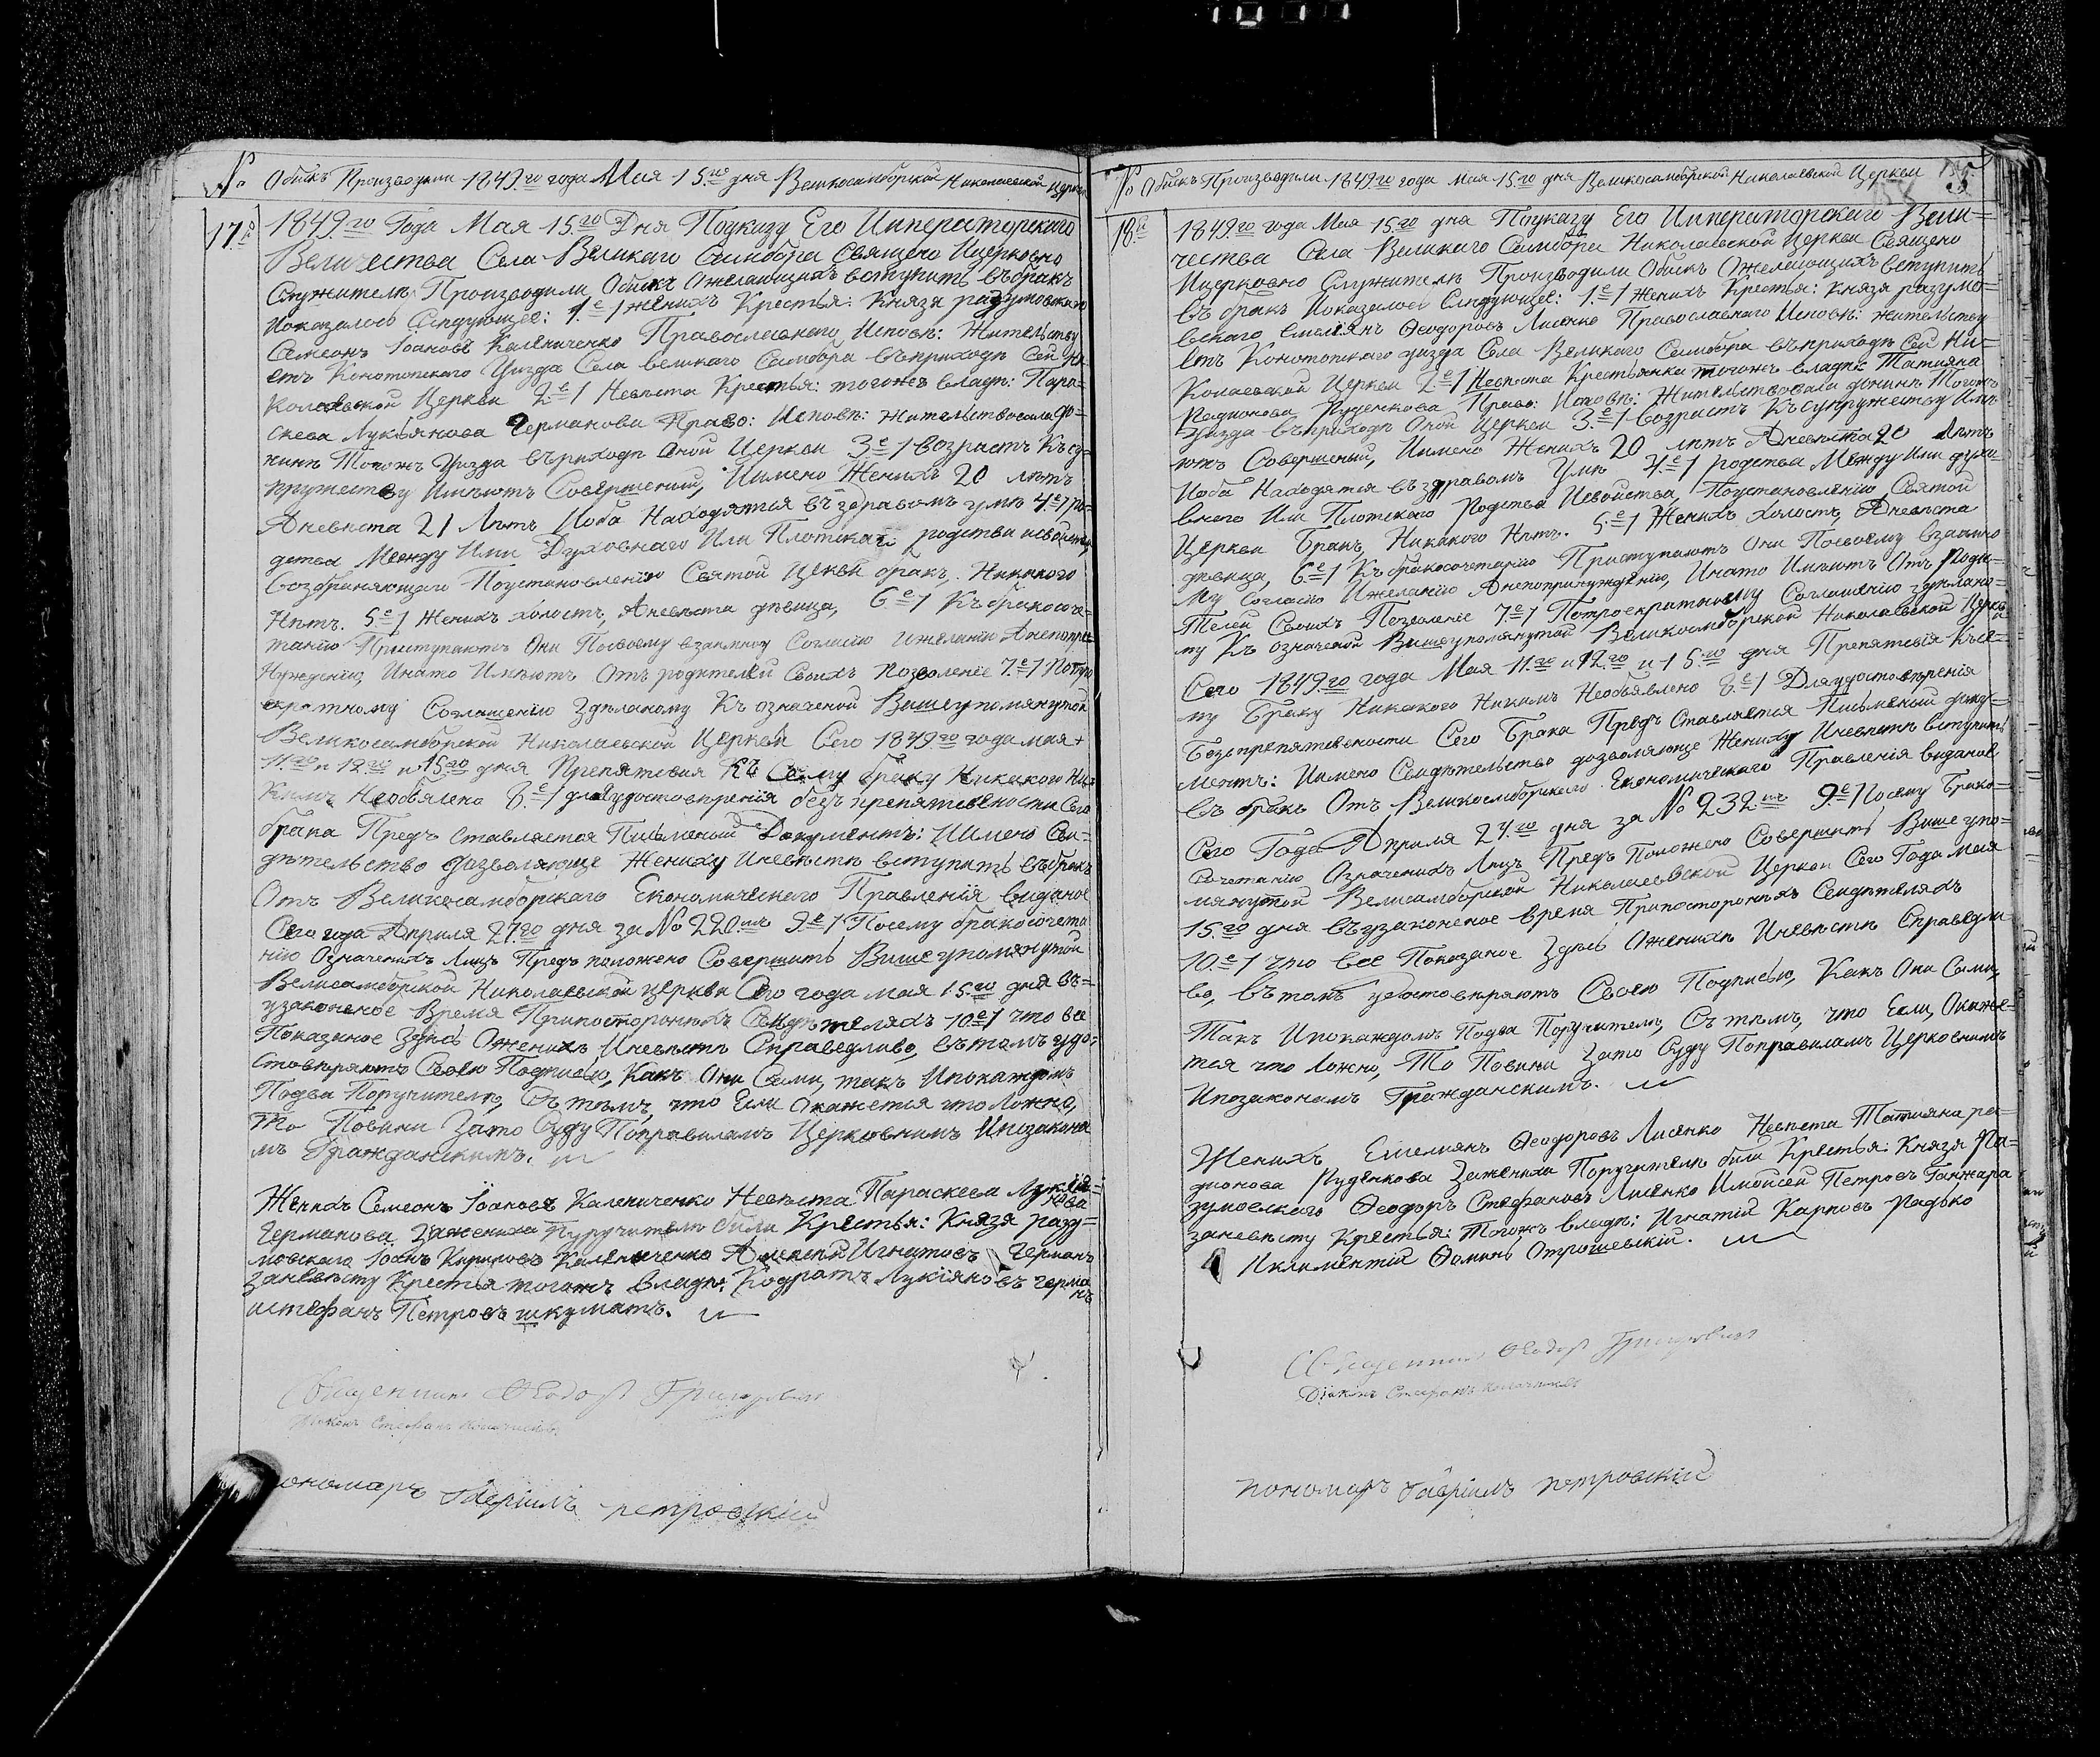 № Обыскъ Производили 1849.го года Мая 15.го дня Великосамборской Николаевской Церкви
17.й
1849.го Года Мая 15.го Дня Поуказу Его Императорскаго
Величества Села Великаго Самбора Священо Ицерковно
Служители Производили Обыскъ Ожелающихъ вступить въбракъ
Ноказалось Следующее: 1.е/ женихъ Крестья: Князя разумовскаго
Семеонъ Іоановъ Калениченко Православнаго Исповѣ: Жительству
етъ Конотопскаго Уѣзда Села великаго Самбора въприходѣ Сей Ни
колаевской Церкви 2.е/ Невѣста Крестья: тогожъ владѣ: Пара=
скева Лукьянова Германова Право: Исповѣ: Жительствовала до=
нинѣ Тогожъ Уѣзда въриходѣ Оной Церкви 3.е/ Возрастъ Късу=
пружеству Имѣютъ Совершеный, Иимено Женихъ 20 лѣтъ
Аневѣста 21 Лѣтъ Иоба Находятся въздравомъ умѣ 4.е/ ро=
дства Между Ими Духовнаго Или Плотскаго родства исвойства
Возбраняющаго Поустановленію Святой Церкви бракъ, Никакого
Нѣтъ. 5.е/ Женихъ холостъ, Аневѣста дѣвица, 6.е/ Къ бракосоче=
танію Приступаютъ Они Посвоему взаимному Согласію Ижеланію Анепопри=
Нужденію, Инато Имѣютъ Отъ родителей Своихъ Позволеніе 7.е/ Потрое
кратному Соглашенію Здѣланому Къ означеной Вишеупомянутой
Великосамборской Николаевской Церкви Сего 1849.го года мая
11.го и 12.го и 15.го дня Препятевия Къ Сему браку Никакого Ни=
Кимъ Необявлено 8.е/ дляудостовѣренія безъ препятевености Сего
брака Предъ Ставляется Письменый Документъ: Иимено Сви=
дѣтельство дозволяюще Жениху Иневѣстѣ вступить въбракъ
Отъ Великосамборскаго Економическаго Правленія виданое
Сего года Априля 27.го дня за № 220.мъ 9.е/ Посему бракосочета
нію Означенихъ Лицъ Предъ положено Совершить Вишеупомянутой
Велисамборской Николаевской церкви Сего года мая 15.го дня въ=
узаконеное Время Припостороннихъ Свидѣтеляхъ 10.е/ что все
Показаное Здѣсь Оженихѣ Иневѣстѣ Справедливо, вътомъ удо=
стовѣряютъ Своею Подписью, Какъ Они Сами, такъ Ипокаждомъ
Подва Поручителю, Съ тѣмъ, что Если Окажется что Ложно,
То Повини Зато Суду Поправиламъ Церковнимъ Ипозакона
мъ Гражданскимъ.
Женихъ Семеонъ Іоановъ Калениченко Невѣста Параскева Лукія=
нова
Германова Зажениха Пуручители били Крестья: Князя разу=
мовскаго Іоанъ Кириловъ Калениченко Алексѣй Игнатовъ Германъ
Заневѣсту Крестья тогожъ владѣ: Кодратъ Лукіяновъ герма
нъ
истефанъ Петровъ шкуматъ.
Священникъ Ѳеодоръ Григоровичъ
Діаконъ Стефанъ
пономаръ Гавріилъ петровскій
№ Обыскъ Производили 1849.го года мая 15.го дня Великосамборской Николаевской Церкви
18.й
1849.го года Мая 15.го дня Поуказу Его Императорскаго Вели=
чества Села Великаго Самбора Николаевской Церкви Священо
Ицерковно Служители Производили Обыскъ Ожелающихъ вступить
въ бракъ Показалось Следующее: 1.е/ Женихъ Крестья: Князя разумо=
вскаго Емелянъ Ѳеодоровъ Лисенко Православнаго Исповѣ: жительству
етъ Конотопскаго уѣзда Села Великаго Самбора въприходѣ Сей Ни=
Колаевской Церкви 2.е/ Невѣста Крестьянка тогожъ владѣ: Татияна
Родионова Руденкова Право: Исповѣ: Жительствовала донинѣ Тогожъ
Уѣзда въприходѣ Оной Церкви 3.е/ возрастъ Късупружеству Имѣ
ютъ Совершеный, Иимено Женихъ 20 лѣтъ Аневѣста 20 Лѣтъ
Иоба Находятся въздравомъ Умѣ 4.е/ родства Между Ими духо=
внаго Или Плотскаго родства Исвойства, Поустановленію Святой
Церкви Бракъ, Никакого Нѣтъ. 5.е/ Женихъ холостъ, Аневѣста
девица, 6.е/ Къ бракосочетанію Приступаютъ Они Посвоему взаимно
му Согласію Ижеланію Анепопринуждению, Инато Имѣютъ Отъ Роди=
Телей Своихъ Позволеніе 7.е/ Потроекратному Соглашенію здѣлано=
му Къ означеной Вишеупомянутой Великосамборской Николаевской Церкви
Сего 1849.го года Мая 11.го и 12.го и 15.го дня Препятевія Късе=
му Браку Никакого Никимъ Необъявлено 8.е/ Дляудостовѣренія
Безъпрепятевености Сего Брака Предъ Ставляется Письменый доку=
ментъ: Иимено Свидѣтельство дозволяюще Жениху Иневѣстѣ вступить
въ бракъ Отъ Великосамборскаго Економическаго Правленія виданое
Сего Года Априля 27.го дня за № 232.мъ 9.е/ Посему Брако=
Сочетанію Означенихъ Лицъ Предъ Положено Совершить Вишеупо=
мянутой Велисамборской Николаевской Церкви Сего Года мая
15.го дня въузаконеное время Припостороннихъ Свидѣтеляхъ
10.е/ что все Показаное Здѣсь Оженихѣ Иневѣстѣ Справедли
во, вътомъ удостовѣряютъ Своею Подписью, Какъ Они Сами,
Такъ Ипокаждомъ Подва Поручителю, Съ тѣмъ, что Если, Окаже=
тся что Ложно, То Повини Зато Суду Поправиламъ Церковнимъ
Ипозаконамъ Гражданскимъ.
Женихъ Емелиянъ Ѳеодоровъ Лисенко Невѣста Татияна ро=
дионова Руденкова Зажениха Поручители били Крестья: Князя Ра=
зумовскаго Ѳеодоръ Стефановъ Лисенко Имойсей Петровъ Ганжара
заневѣсту Крестья: Тогожъ владѣ: Игнатій Карповъ Радько
Иклиментій Ѳоминъ Отрошевскій.
Священникъ Ѳеодоръ Григоровичъ
Діаконъ Стефанъ
пономаръ Гавріилъ петровскій